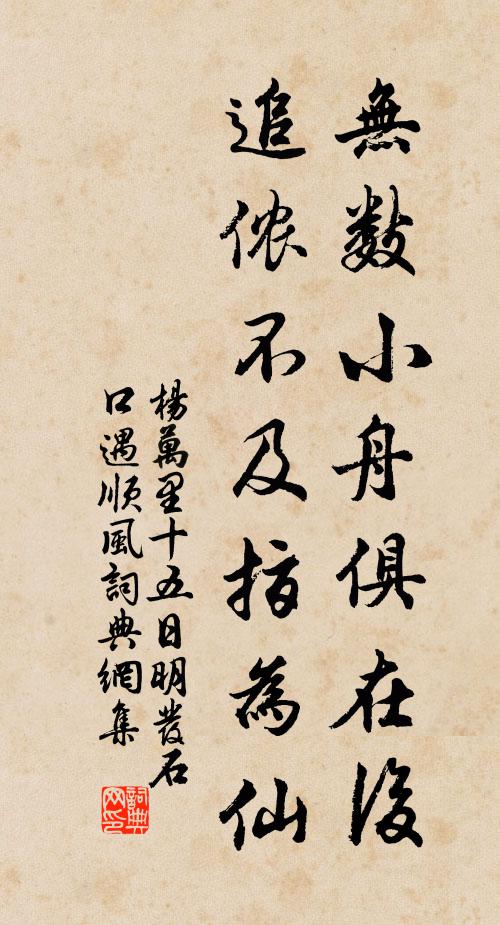 無数小舟俱在後
追侬不及指為仙
楊萬里十五日明發石
口遇順風詞典網集
詞典
网印